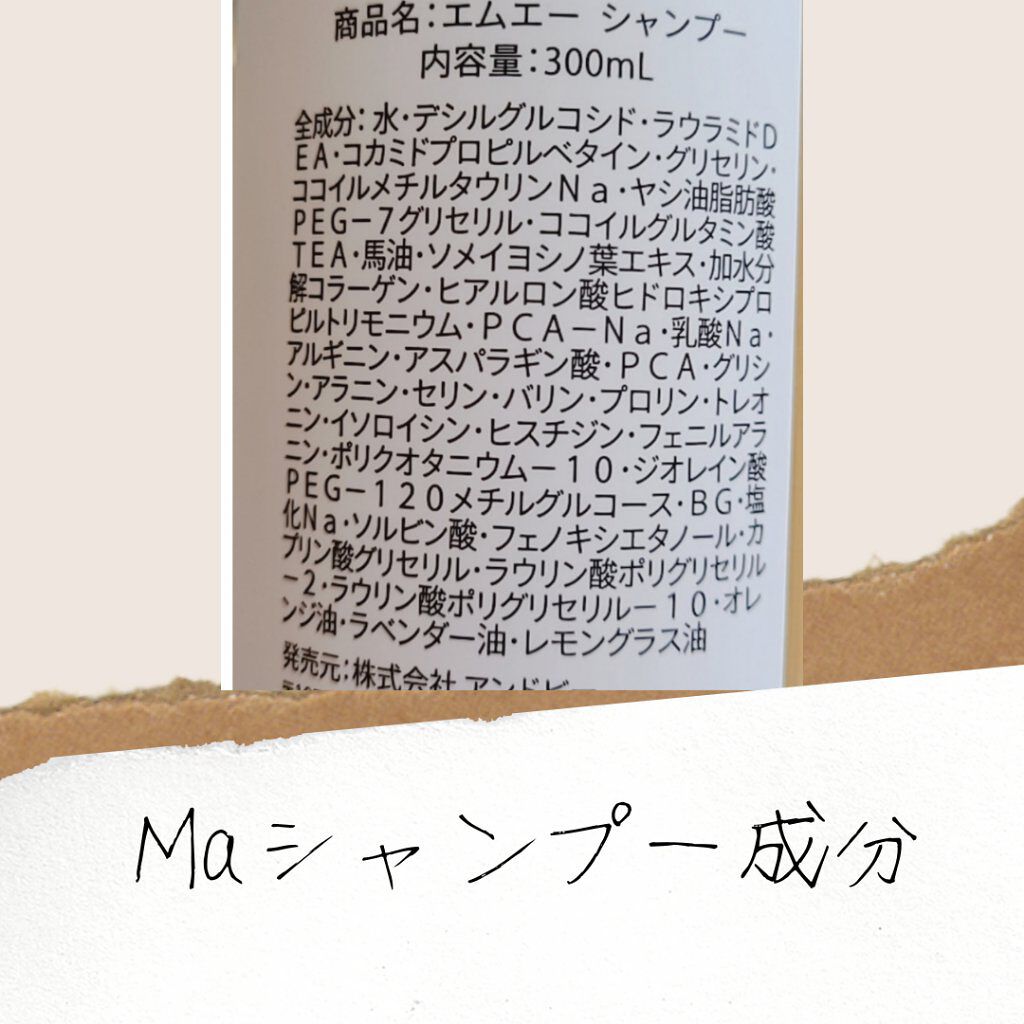 商品名：エムエー シャンプー
内容量：300mL
全成分：水・デシルグルコシド・ラウラミドD
EA・コカミドプロピルベタイン・グリセリン・
ココイルメチルタウリンNa・ヤシ油脂肪酸
PEG－7グリセリル・ココイルグルタミン酸
TEA・馬油・ソメイヨシノ葉エキス・加水分
解コラーゲン・ヒアルロン酸ヒドロキシプロ
ピルトリモニウム・PCA－Na・乳酸Na・
アルギニン・アスパラギン酸・PCA・グリシ
ン・アラニン・セリン・バリン・プロリン・トレオ
ニン・イソロイシン・ヒスチジン・フェニルアラ
ニン・ポリクオタニウム－10・ジオレイン酸
PEG－120メチルグルコース・BG・塩
化Na・ソルビン酸・フェノキシエタノール・カ
プリン酸グリセリル・ラウリン酸ポリグリセリル
－2・ラウリン酸ポリグリセリル－10・オレ
ンジ油・ラベンダー油・レモングラス油
発売元：株式会社 アンドビー
Maシャンプー成分